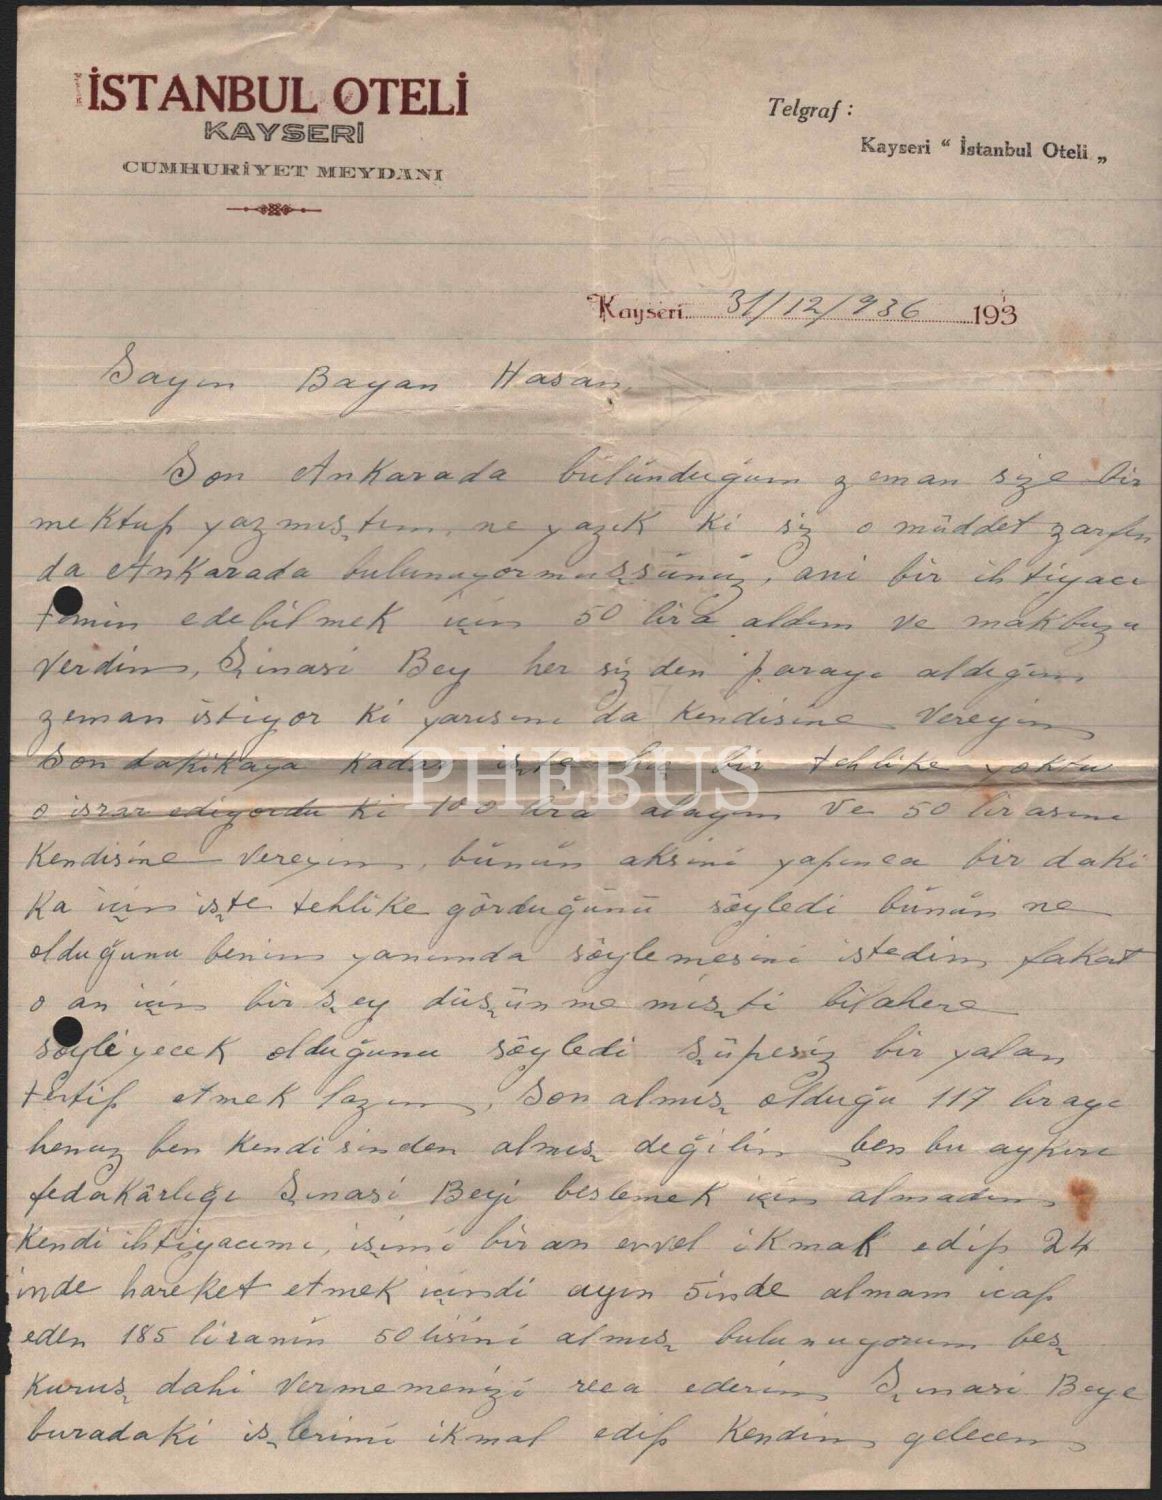 İSTANBUL OTELİ
KAYSERİ
CUMHURİYET MEYDANI
Telgraf :
Kayseri “ İstanbul Oteli „
Kayseri 31/12/936 193
Sayın Bayan Hasan
Son Ankarada bülündüğum zeman size bir
mektup yazmıştım, ne yazık ki siz o müddet zarfın
da Ankarada bulunuyormuşsünüz, ani bir ihtiyacı
temin edebilmek için 50 lira aldım ve makbuzu
verdim, Şinasi Bey her sizden parayı aldığım
zeman istiyor ki yarısını da kendisine vereyim
Son dakikaya kadar işte hiç bir tehlike yoktu
o israr ediyordu ki 100 lira alayım ve 50 lirasını
kendisine vereyim, bünün aksini yapınca bir daki
ka için işte tehlike gördüğünü söyledi bünün ne
olduğunu benim yanımda söylemesini istedim fakat
o an için bir şey düşünmemişti bilahere
söyliyecek olduğunu söyledi şüpesiz bir yalan
tertip etmek lazım, Son almış olduğu 117 lirayı
henuz ben kendisinden almış değilim ben bu
fedakârlığı Şinasi Beyi beslemek için almadım
Kendi ihtiyacımı, işimi bir an evvel ikmal edip 24
inde hareket etmek içindi ayın 5inde almam icap
eden 185 liranın 50 lisini almış bulunuyorum beş
kuruş dahi vermemenizi reca ederim Şinasi Beye
buradaki işlerimi ikmal edip kendim gelecem
PHEBUS